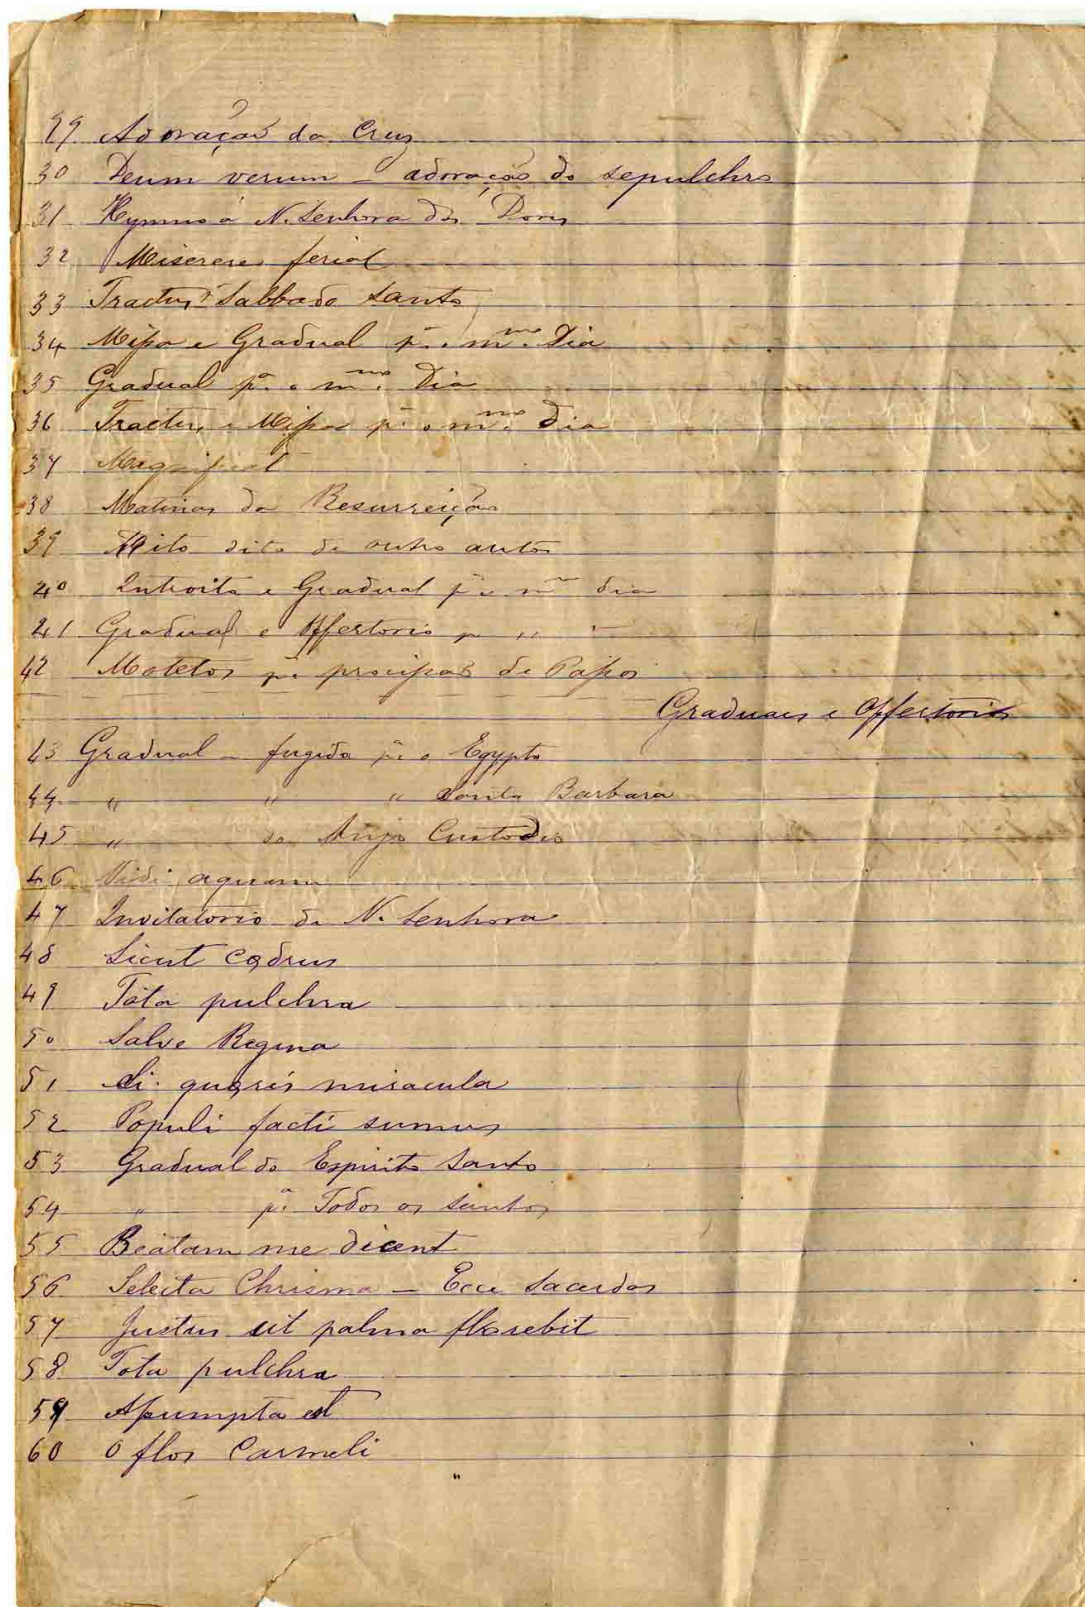 29 Adoração da Cruz
30 Deum verum - adoração do sepulchro
31 Hymno á N. Senhora das Dores
32 Miserere ferial
33 Tractus Sabbado Santo
34 Missa e Gradual pª o mmo Dia
35 Gradual pª o mmo Dia
36 Tractus e Missa pª o mmo Dia
37 Magnificat
38 Matinas da Resurreição
39 dita de outro autor
40 Introito e Gradual pª o mmo dia
41 Gradual e Offertorio p " "
42 Motetos pª procissão de Passos
Graduaes e Offertorios
43 Gradual - fugida pª o Egypto
44 " " " Santa Barbara
45 " do Anjo Custodio
46 Vidi aquam
47 Invitatorio de N. Senhora
48 Sicut cedrus
49 Tota pulchra
50 Salve Regina
51 Si quæris miracula
52 Populi facti sumus
53 Gradual do Espirito Santo
54 " pª Todos os Santos
55 Beatam me dicent
56 Selecta Chrisma - Ecce Sacerdos
57 Justus ut palma florebit
58 Tota pulchra
59 Assumpta est
60 O flos Carmeli
"